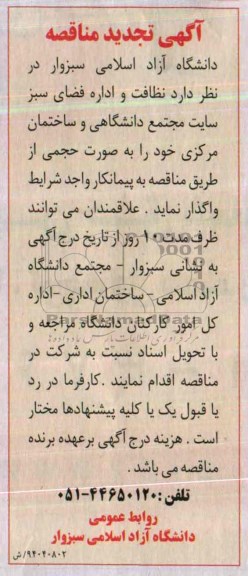 آگهی تجدید مناقصه
دانشگاه آزاد اسلامی سبزوار در
نظر دارد نظافت و اداره فضای سبز
سایت مجتمع دانشگاهی و ساختمان
مرکزی خود را به صورت حجمی از
طریق مناقصه به پیمانکار واجد شرایط
واگذار نماید . علاقمندان می توانند
ظرف مدت ۱۰ روز از تاریخ درج آگهی
به نشانی سبزوار - مجتمع دانشگاه
آزاد اسلامی - ساختمان اداری - اداره
کل امور کارکنان دانشگاه مراجعه و
با تحویل اسناد نسبت به شرکت در
مناقصه اقدام نمایند . کارفرما در رد
یا قبول یک یا کلیه پیشنهادها مختار
است . هزینه درج آگهی برعهده برنده
مناقصه می باشد .
تلفن : ۴۴۶۵۰۱۲۰-۰۵۱
روابط عمومی
دانشگاه آزاد اسلامی سبزوار
۹۴۰۴۰۸۰۲/ش